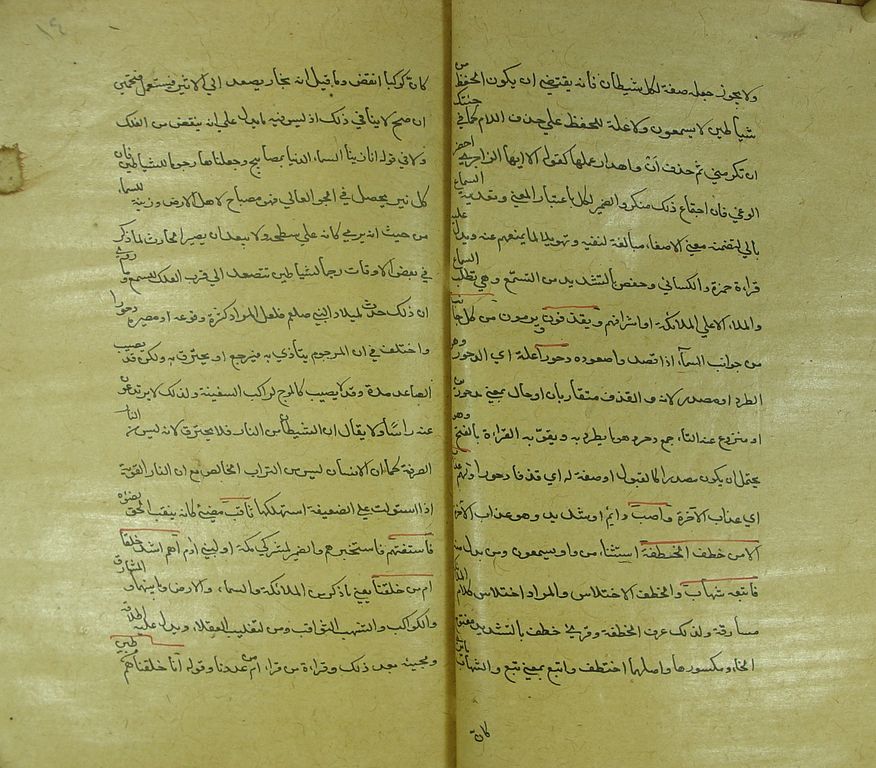 ولا يجوز جعله صفة لكل شيطان فانه يقتضي ان يكون الحفظ من
شياطين لا يسمعون ولا علة للحفظ علي حذف اللام كما في جئتك
ان تكرمني ثم حذف ان واهدار عملها كقوله الا ايهذا الزاجري احضر
الوغي فان اجتماع ذلك منكر والضمير لكل باعتبار المعني وتعدية السماع
بالي لتضمنه معني الاصغاء مبالغة لنفيه وتهويلا لما يمنعهم عنه ويدل عليه
قراءة حمزة والكسائي وحفص بالتشديد من التسمع وهو تطلب السماع
والملاء الاعلي الملائكة او اشرافهم ويقذفون ويرمون من كل جانب
من جوانب السماء اذا قصدوا صعوده دحورا علة اي للدحور وهو
الطرد او مصدر لانه والقذف متقاربان او حال بمعني مدحورين
او منزوع عنه الباء جمع دحر وهو ما يطرد به ويقويه القراءة بالفتح وهو
يحتمل ان يكون مصدرا كالقبول او صفة له اي قذفا دحورا ولهم عذاب
اي عذاب الاخرة واصب دائم او شديد وهو عذاب الاخرة
الا من خطف الخطفة استثناء من واو يسمعون ومن بدل منه
فاتبعه شهاب والخطف الاختلاس والمراد اختلاس كلام الملائكة
مسارقة ولذلك عرف الخطفة وقري خطف بالتشديد مفتوح
الخاء ومكسورها واصلها اختطف واتبع بمعني تبع والشهاب ما يري
كان
١٤
كان كوكبا انقض وما قيل انه بخار يصعد الي الاثير فيشتعل فتخمين
ان صح لا ينافي ذلك اذ ليس فيه ما يدل علي انه ينقض من الفلك
ولا في قوله انا زينا السماء الدنيا بمصابيح وجعلناها رجوما للشياطين فان
كل نير يحصل في الجو العالي فهو مصباح لاهل الارض وزينة للسماء
من حيث انه يري كانه علي سطحه ولا يبعد ان يصير الحادث لما ذكر
في بعض الاوقات رجما لشياطين تتصعد الي قرب الفلك للتسمع وما روي
ان ذلك حدث لميلاد النبي صلعم فلعل المراد كثرة وقوعه او مصيره دحورا
واختلف في ان المرجوم يتاذي به فيرجع او يحترق به ولكن قد يصيب
الصاعد مرة وقد لا يصيب كالموج لراكب السفينة ولذلك لا يرتدعون
عنه راسا ولا يقال ان الشيطان من النار فلا يحترق لانه ليس من النار
الصرفة كما ان الانسان ليس من التراب الخالص مع ان النار القوية
اذا استولت علي الضعيفة استهلكتها ثاقب مضيء كانه يثقب الجو بضوءه
فاستفتهم فاستخبرهم والضمير لمشركي مكة او لبني ادم أهم اشد خلقا
ام من خلقنا يعني ما ذكر من الملائكة والسماء والارض وما بينهما والمشارق
والكواكب والشهب الثواقب ومن لتغليب العقلاء ويدل عليه اطلاقه
ومجيئه بعد ذلك وقراءة من قراء ام من عددنا وقوله انا خلقناهم من طين